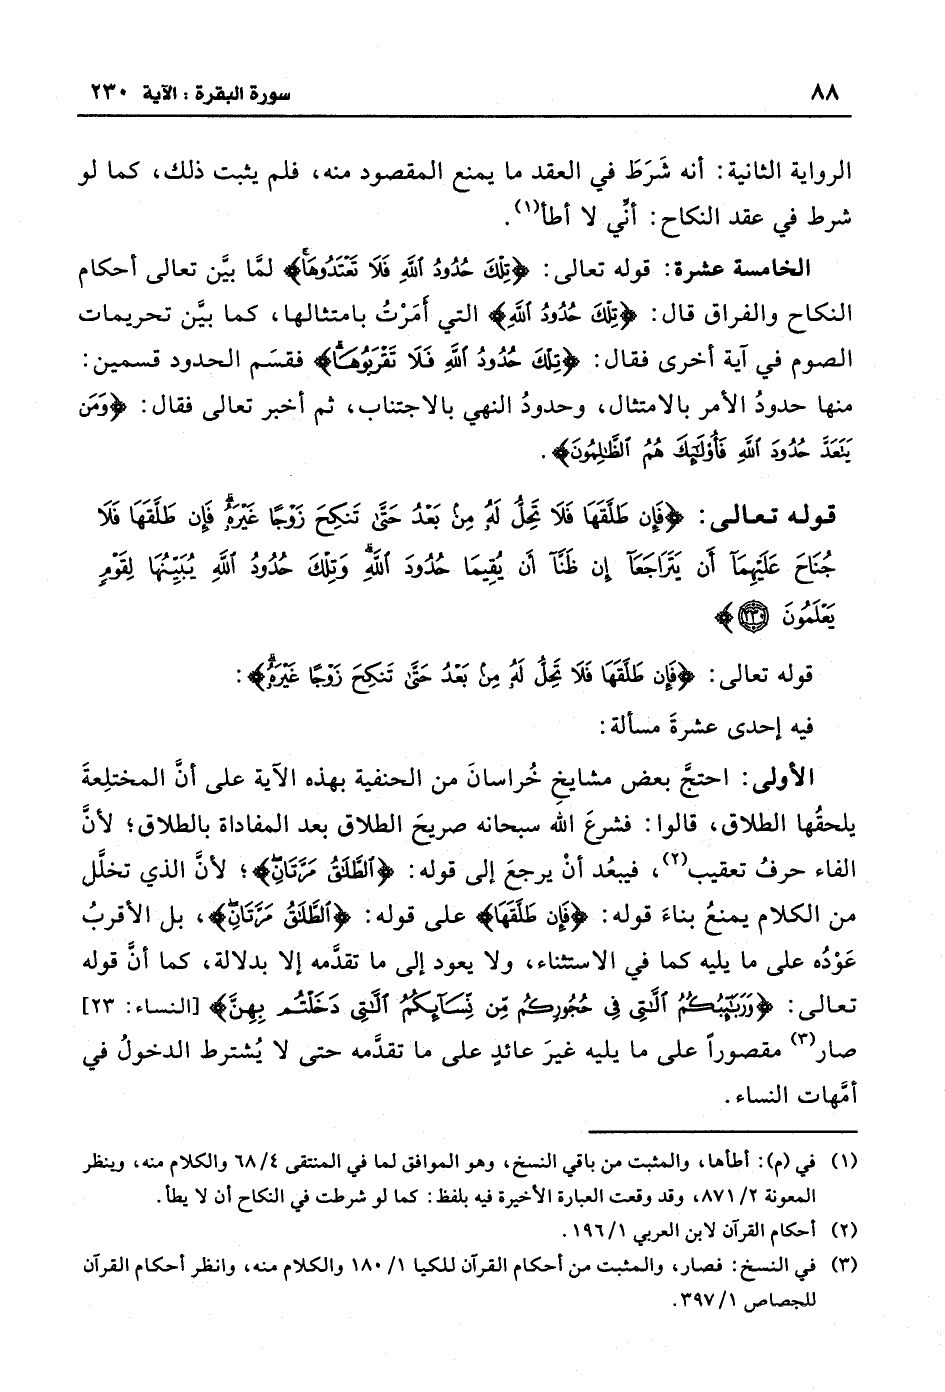 ٨٨ سورة البقرة : الآية ٢٣٠
الرواية الثانية: أنه شَرَطَ في العقد ما يمنع المقصود منه، فلم يثبت ذلك، كما لو
شرط في عقد النكاح: أنِّي لا أطأ(١).
الخامسة عشرة: قوله تعالى: ﴿تِلْكَ حُدُودُ ٱللَّهِ فَلَا تَعْتَدُوهَاۚ﴾ لمَّا بيَّن تعالى أحكام
النكاح والفراق قال: ﴿تِلْكَ حُدُودُ ٱللَّهِ﴾ التي أَمَرْتُ بامتثالها، كما بيَّن تحريمات
الصوم في آية أخرى فقال: ﴿تِلْكَ حُدُودُ ٱللَّهِ فَلَا تَقْرَبُوهَاۗ﴾ فقسَم الحدود قسمين:
منها حدودُ الأمر بالامتثال، وحدودُ النهي بالاجتناب، ثم أخبر تعالى فقال: ﴿وَمَن
يَتَعَدَّ حُدُودَ ٱللَّهِ فَأُوْلَٰٓئِكَ هُمُ ٱلظَّٰلِمُونَ﴾.
قوله تعالى: ﴿فَإِن طَلَّقَهَا فَلَا تَحِلُّ لَهُۥ مِنۢ بَعْدُ حَتَّىٰ تَنكِحَ زَوْجًا غَيْرَهُۥۗ فَإِن طَلَّقَهَا فَلَا
جُنَاحَ عَلَيْهِمَآ أَن يَتَرَاجَعَآ إِن ظَنَّآ أَن يُقِيمَا حُدُودَ ٱللَّهِۗ وَتِلْكَ حُدُودُ ٱللَّهِ يُبَيِّنُهَا لِقَوْمٍ
يَعْلَمُونَ ٢٣٠﴾
قوله تعالى: ﴿فَإِن طَلَّقَهَا فَلَا تَحِلُّ لَهُۥ مِنۢ بَعْدُ حَتَّىٰ تَنكِحَ زَوْجًا غَيْرَهُۥۗ﴾:
فيه إحدى عشرةَ مسألة:
الأولى: احتجَّ بعض مشايخِ خُراسانَ من الحنفية بهذه الآية على أنَّ المختلِعةَ
يلحقُها الطلاق، قالوا: فشرعَ الله سبحانه صريحَ الطلاق بعد المفاداة بالطلاق؛ لأنَّ
الفاء حرفُ تعقيب(٢)، فيبعُد أنْ يرجعَ إلى قوله: ﴿ٱلطَّلَٰقُ مَرَّتَانِۖ﴾؛ لأنَّ الذي تخلَّل
من الكلام يمنعُ بناءَ قوله: ﴿فَإِن طَلَّقَهَا﴾ على قوله: ﴿ٱلطَّلَٰقُ مَرَّتَانِۖ﴾، بل الأقربُ
عَوْدُه على ما يليه كما في الاستثناء، ولا يعود إلى ما تقدَّمه إلا بدلالة، كما أنَّ قوله
تعالى: ﴿وَرَبَٰٓئِبُكُمُ ٱلَّٰتِى فِى حُجُورِكُم مِّن نِّسَآئِكُمُ ٱلَّٰتِى دَخَلْتُم بِهِنَّ﴾ [النساء: ٢٣]
صار(٣) مقصوراً على ما يليه غيرَ عائدٍ على ما تقدَّمه حتى لا يُشترط الدخولُ في
أمَّهات النساء.
(١) في (م): أطأها، والمثبت من باقي النسخ، وهو الموافق لما في المنتقى ٦٨/٤ والكلام منه، وينظر
المعونة ٨٧١/٢، وقد وقعت العبارة الأخيرة فيه بلفظ: كما لو شرطت في النكاح أن لا يطأ.
(٢) أحكام القرآن لابن العربي ١٩٦/١.
(٣) في النسخ: فصار، والمثبت من أحكام القرآن للكيا ١٨٠/١ والكلام منه، وانظر أحكام القرآن
للجصاص ٣٩٧/١.